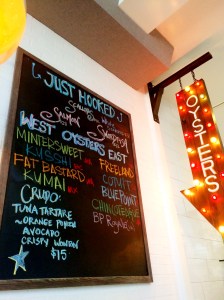 JUST HOOKED
SCALLOP
SALMON SWORDFISH
WEST OYSTERS EAST
MINTERSWEET FREELAND
KUSSHI COTUIT
FAT BASTARD BLUEPOINT
KUMAI CHINCOTEAGUE
CRUDO:
TUNA TARTARE
~ORANGE PONZU
AVOCADO
CRISPY WONTON
$15
OYSTERS